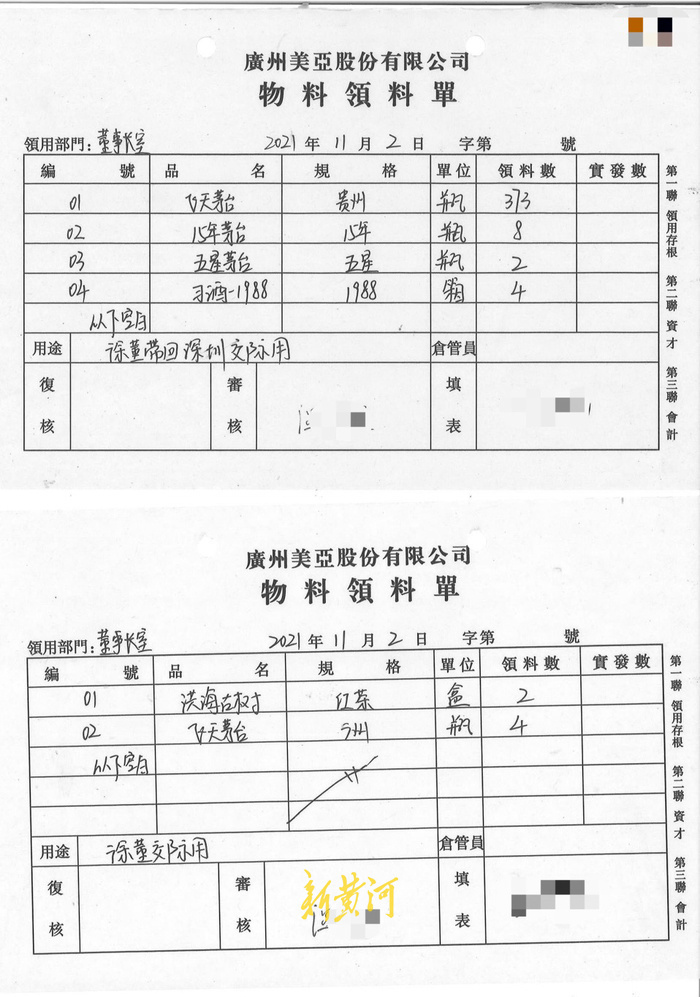 廣州美亞股份有限公司
物料領料單
領用部門：董事长室 2021年11月2日 字第 號
編號 品名 規格 單位 領料數 實發數
01 飞天茅台 贵州 瓶 373
02 15年茅台 15年 瓶 8
03 五星茅台 五星 瓶 2
04 习酒-1988 1988 箱 4
以下空白
用途 徐董带回深圳交际用 倉管員
復核 審核 填表
第一聯 領用存根 第二聯 資才 第三聯 會計
廣州美亞股份有限公司
物料領料單
領用部門：董事长室 2021年11月2日 字第 號
編號 品名 規格 單位 領料數 實發數
01 古树 红茶 盒 2
02 飞天茅台 瓶 4
以下空白
用途 徐董交际用 倉管員
復核 審核 填表
新黄河
第一聯 領用存根 第二聯 資才 第三聯 會計